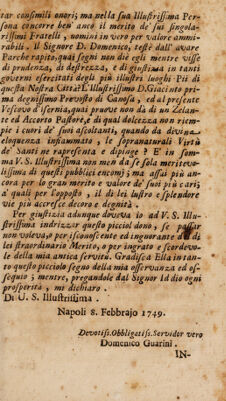 tar consimili onori; ma nella sua Illustrissima Per-
sona concorre ben' anco il merito de' sui singola-
rissimi Fratelli, nomini in vero per valore ammi-
rabili. Il Signore D. Domenico, testè dall' avare
Parche rapito, quai segni non die egli mentre visse
di prudenza, di destrezza, e di giustizia in tanti
governi esercitati degli più illustri luoghi Pii di
questa Nostra Città? L'Illustrissimo D. Giacinto pri-
ma degnissimo Vescovo di Canosa, ed al presente
Vescovo d'Isernia, quai pruove non dà di un Zelan-
te ed Accorto Pastore, e di qual dolcezza non riem-
pie i cuori de' suoi ascoltanti, quando da divina
eloquenza infiammato, le sopranaturali Virtù
de' Santi ne rapresenta e dipinge? E in som-
ma V. S. Illustrissima non men da se sola meriteva-
lissima di questi pubblici encomj; ma assai più an-
cora per lo gran merito e valore de' suoi più cari;
a' quali per l'opposto, il di lei lustro e splendore
vie più accresce decoro e degnità.
Per giustizia adunque doveva io ad V. S. Illu-
strissima indrizzar questo picciol dono, se passar
non voleva, o per isconoscente ed ingnorante di di
lei straordinario Merito, o per ingrato e scordevo-
le della mia antica servitù. Gradisca Ella intan-
to questo picciolo segno della mia osservanza ed os-
sequio; mentre, pregandole dal Signor Iddio ogni
prosperità, mi dichiaro.
Di V. S. Illustrissima.
Napoli 8. Febbrajo 1749.
Devotiss. Obbligatiss. Servidor vero
Domenico Guarini.
IN-